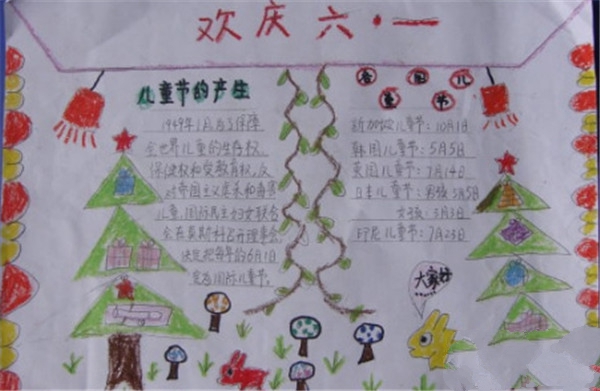 欢庆六·一
儿童节的产生
1949年1月为了保障
全世界儿童的生存权、
保健权和受教育权,反
对帝国主义虐杀和毒害
儿童,国际民主妇女联合
会在莫斯科召开理事会,
决定把每年的6月1日
定为国际儿童节。
各国儿
童节
新加坡儿童节:10月1日
韩国儿童节:5月5日
英国儿童节:7月14日
日本儿童节:男孩5月5日
女孩:3月3日
印尼儿童节:7月23日
大家好